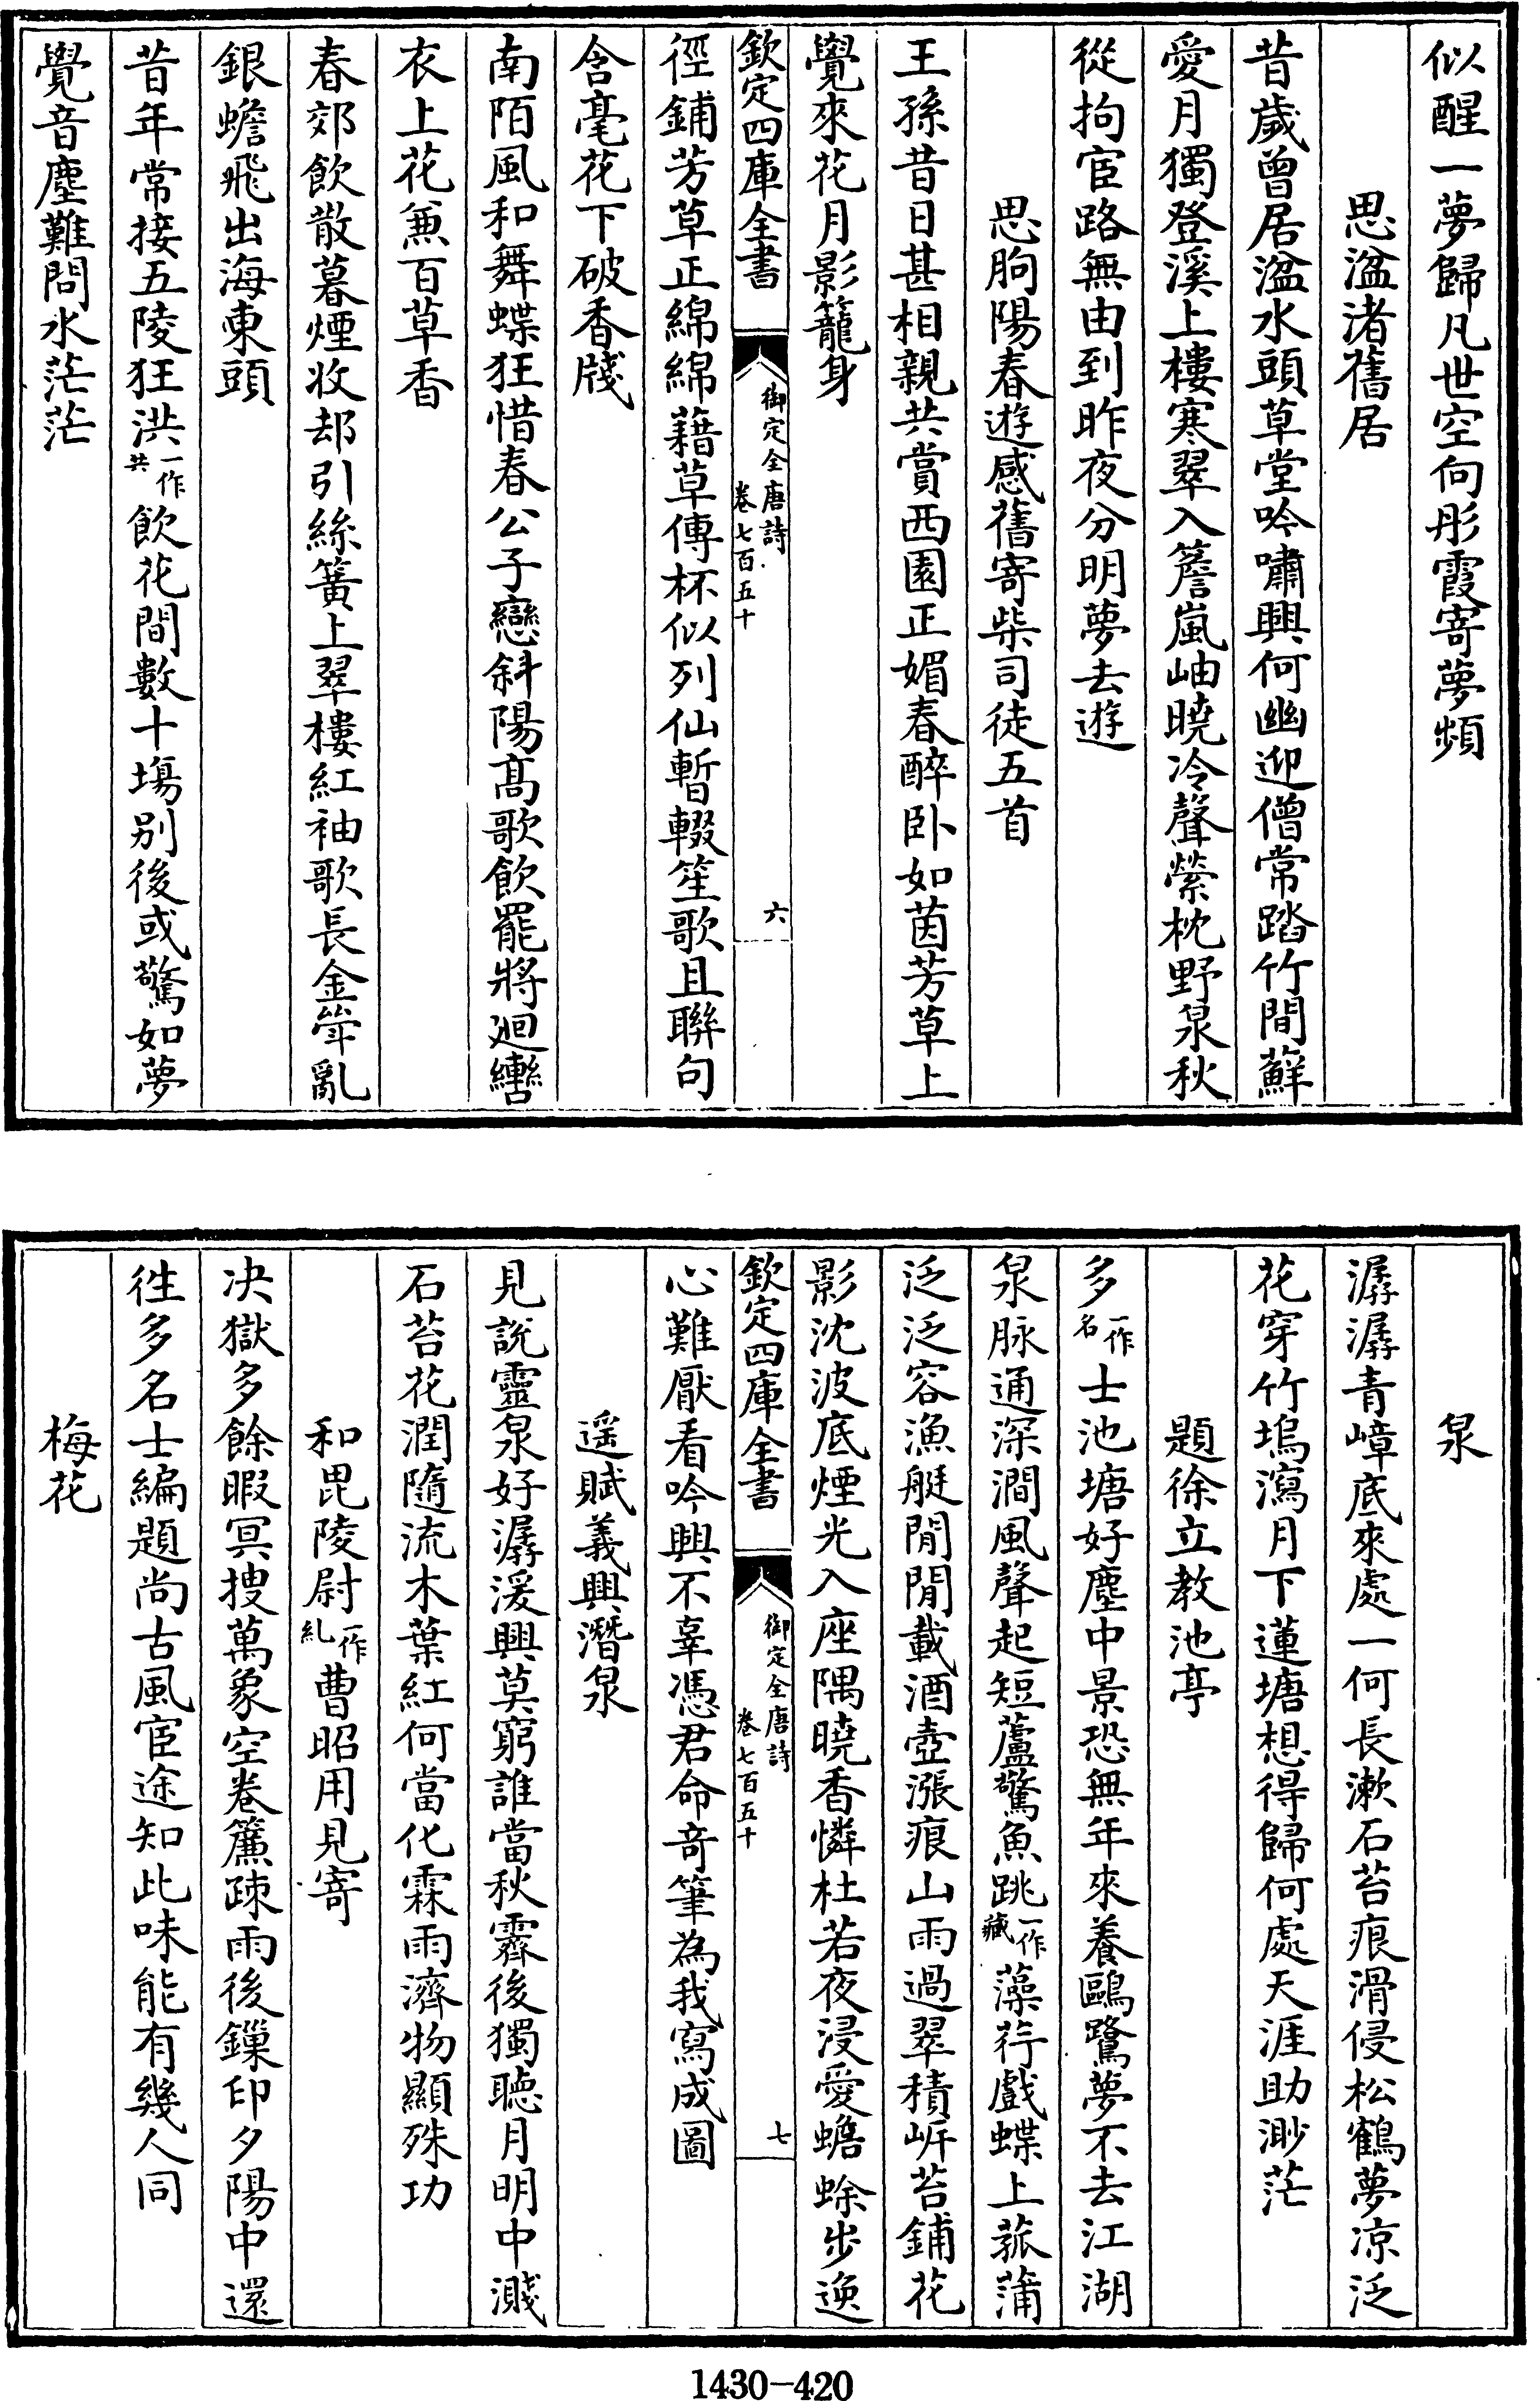 似醒一夢歸凡世空向彤霞寄夢頻
思湓渚舊居
昔歲曾居湓水頭草堂吟嘯興何幽迎僧常踏竹間蘚
愛月獨登溪上樓寒翠入簷嵐岫曉冷聲縈枕野泉秋
從拘宦路無由到昨夜分明夢去遊
思朐陽春遊感舊寄柴司徒五首
王孫昔日甚相親共賞西園正媚春醉卧如茵芳草上
覺來花月影籠身
欽定四庫全書
御定全唐詩
卷七百五十
六
徑鋪芳草正綿綿藉草傳杯似列仙暫輟笙歌且聯句
含毫花下破香牋
南陌風和舞蝶狂惜春公子戀斜陽高歌飲罷將迴轡
衣上花兼百草香
春郊飲散暮煙收却引絲簧上翠樓紅袖歌長金斝亂
銀蟾飛出海東頭
昔年常接五陵狂洪一作共飲花間數十塲别後或驚如夢
覺音塵難問水茫茫
泉
潺潺青嶂底來處一何長漱石苔痕滑侵松鶴夢凉泛
花穿竹塢瀉月下蓮塘想得歸何處天涯助渺茫
題徐立教池亭
多一作名士池塘好塵中景恐無年來養鷗鷺夢不去江湖
泉脉通深澗風聲起短蘆驚魚跳一作藏藻荇戲蝶上菰蒲
泛泛容漁艇閒閒載酒壺漲痕山雨過翠積岍苔鋪花
影沈波底煙光入座隅曉香憐杜若夜浸愛蟾蜍步逸
欽定四庫全書
御定全唐詩
卷七百五十
七
心難厭看吟興不辜憑君命奇筆為我寫成圖
遥賦義興潛泉
見說靈泉好潺湲興莫窮誰當秋霽後獨聽月明中濺
石苔花潤隨流木葉紅何當化霖雨濟物顯殊功
和毘陵尉一作糺曹昭用見寄
决獄多餘暇冥搜萬象空卷簾疎雨後鏁印夕陽中還
徃多名士編題尚古風宦途知此味能有幾人同
梅花
1430-420